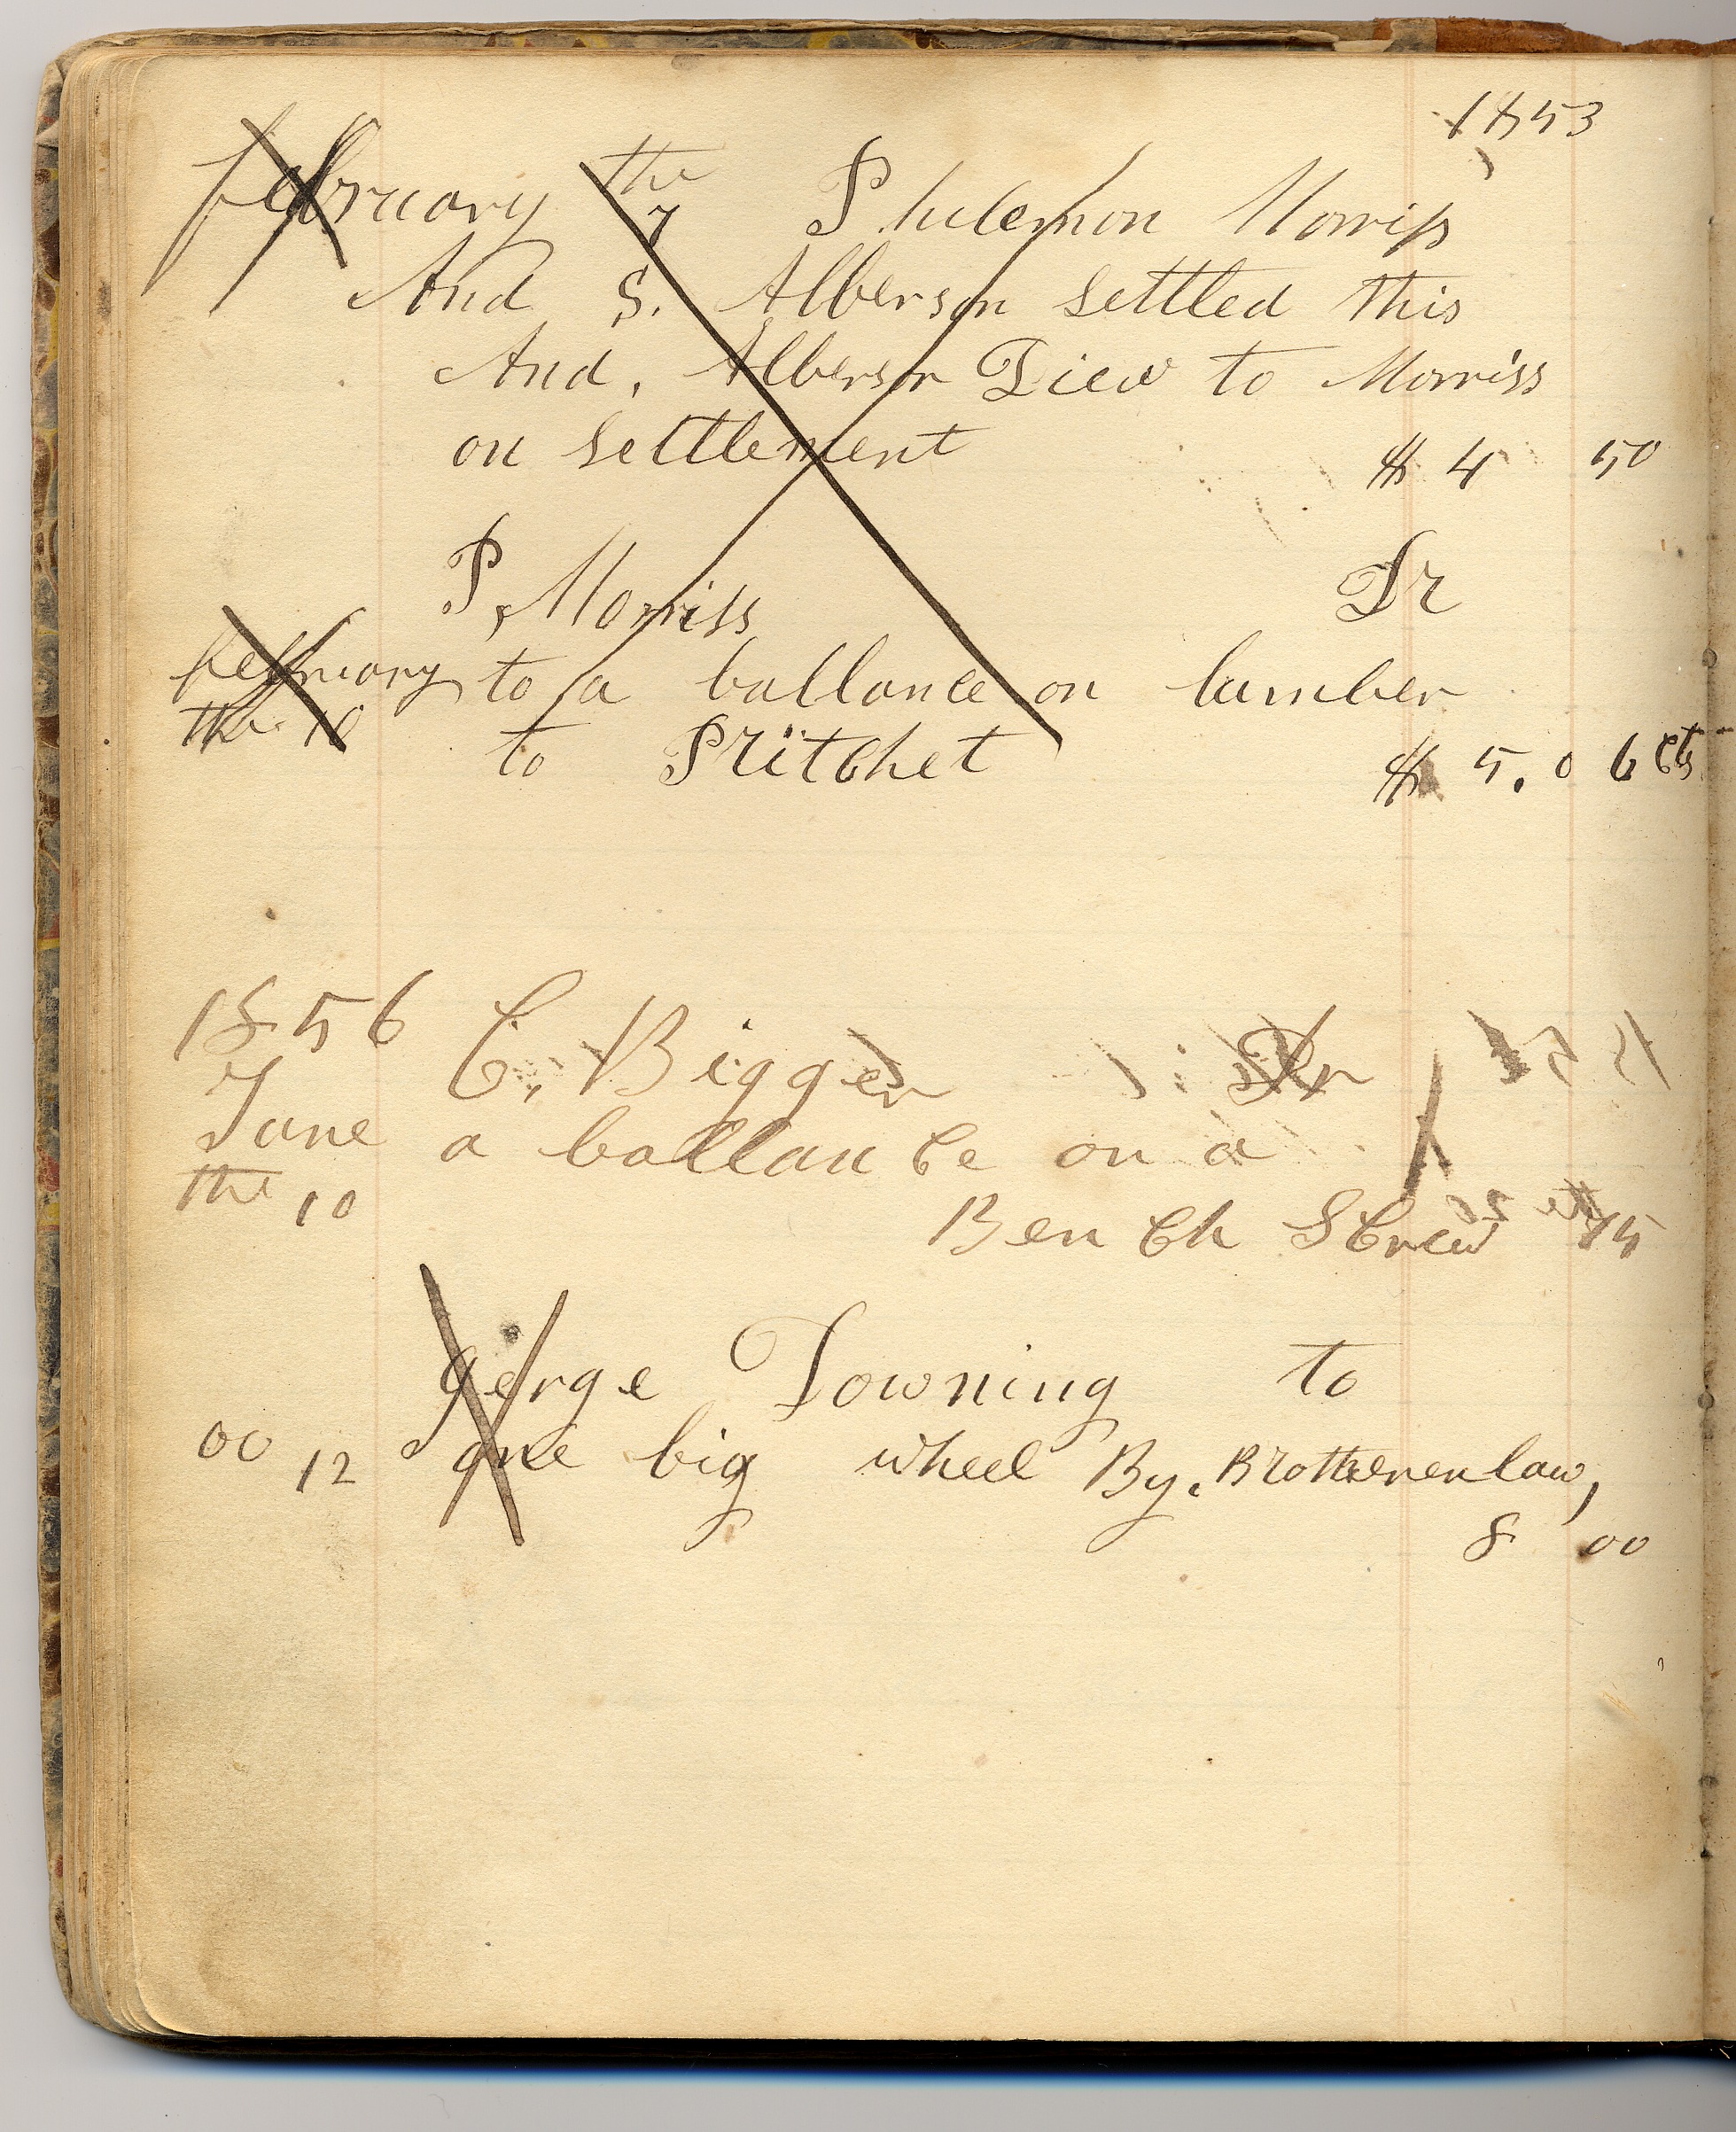 1853
february the 7 Philemon Morriss
And S. Alberson Settled this
And, Alberson Diew to Morriss
on Settlement $ 4 50
P, Morriss Dr
february to a ballance on lumber
the 10 to Pritchet $ 5.06 cts
1856 C. Bigger Dr
June a ballance on a
the 10 Bench Screw 75
gerge Downing to
00 12 one big wheel By. Brotherenlaw,
8 00